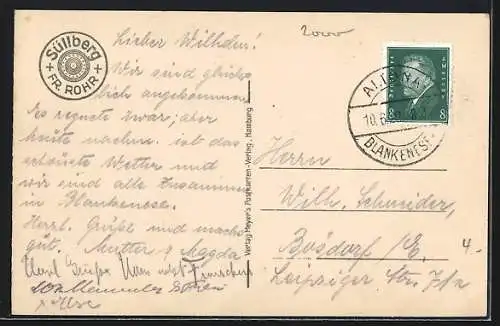 Süllberg
FR. ROHR
Lieber Wilhelm!
Wir sind glück-
lich angekommen
es regnete zwar, aber
heute nachm. ist das
schönste Wetter und
wir sind alle zusammen
in Blankenese.
Herzl. Grüße und machs
gut. Mutter & Magda
Verlag Meyer's Postkarten-Verlag, Hamburg
2000
DEUTSCHES REICH
8 8
ALTONA
10.6.
BLANKENESE
Herrn
Wilh. Schneider,
Bösdorf /E.
Leipziger Str. 71a
4.-